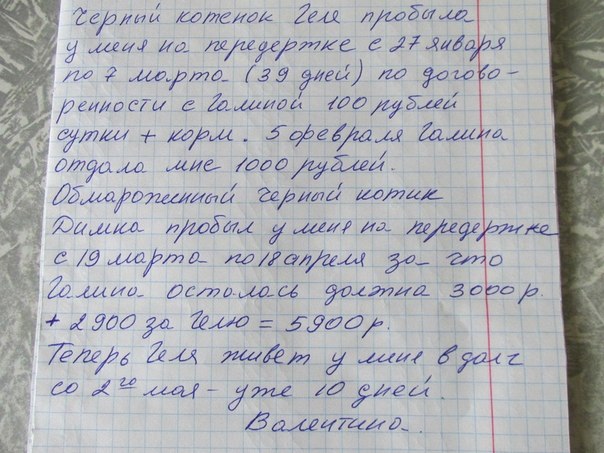 Черный котенок Геля пробыла
у меня на передержке с 27 января
по 7 марта (39 дней) по догово-
ренности с Галиной 100 рублей
сутки + корм. 5 февраля Галина
отдала мне 1000 рублей.
Обмароженный черный котик
Димка пробыл у меня на передержке
с 19 марта по 18 апреля за что
Галина осталась должна 3000 р.
+ 2900 за Гелю = 5900 р.
Теперь Геля живет у меня в долг
со 2го мая - уже 10 дней.
Валентина.